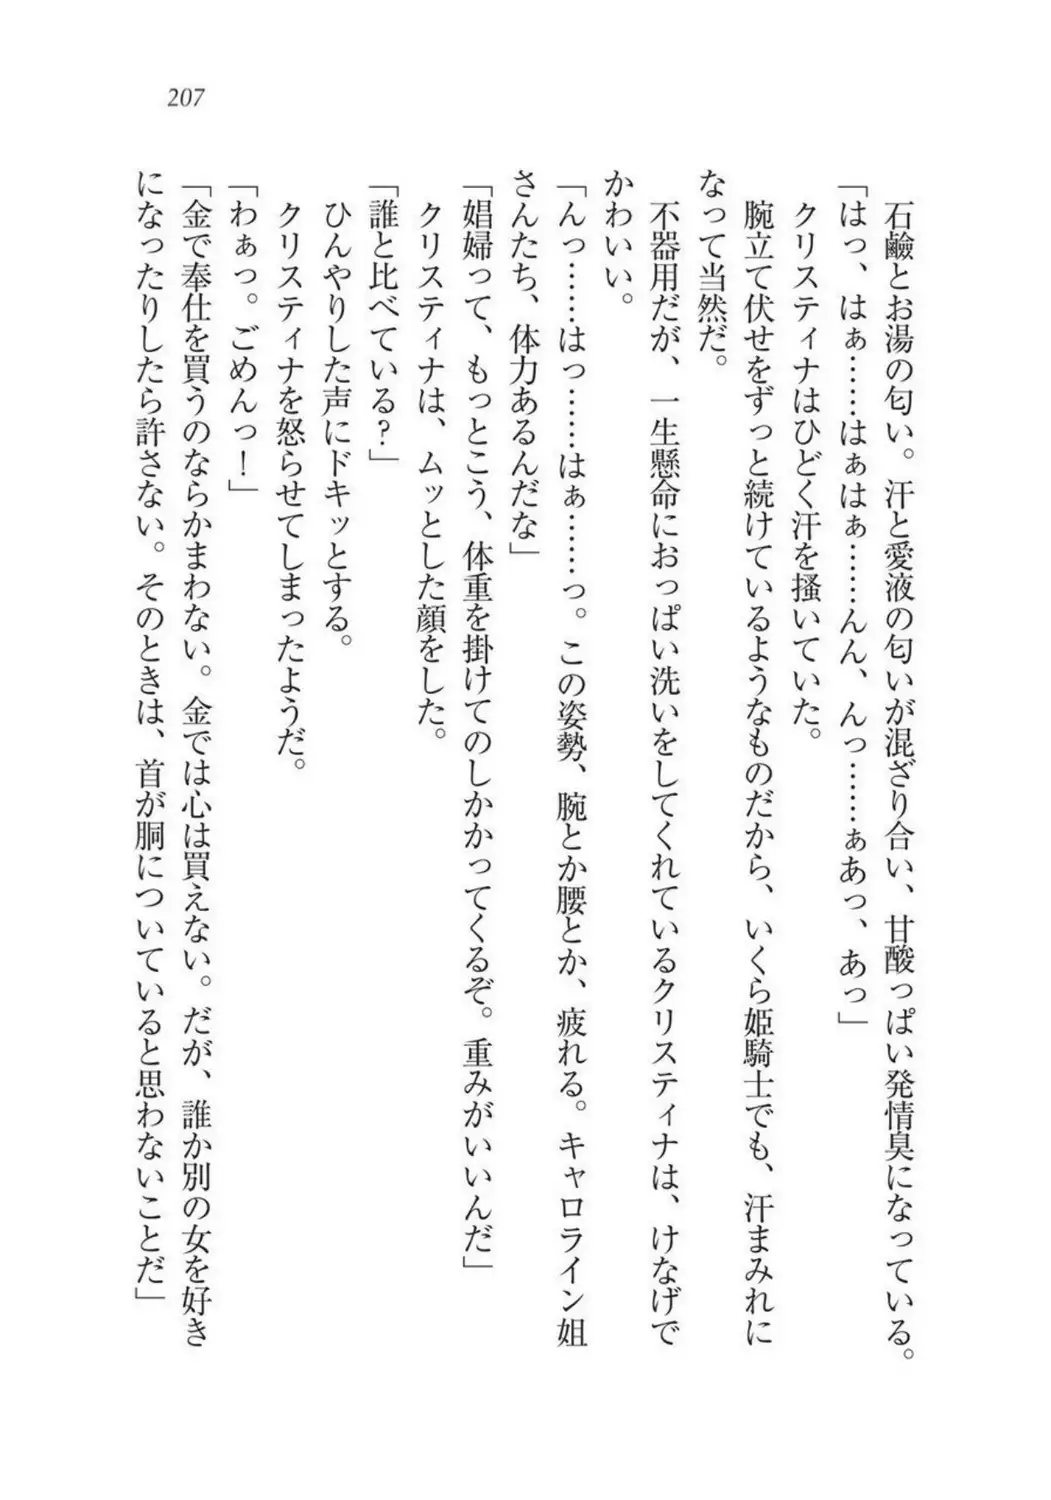 207
石鹼とお湯の匂い。汗と愛液の匂いが混ざり合い、甘酸っぱい発情臭になっている。
「はっ、はぁ……はぁはぁ……んん、んっ……ぁあっ、あっ」
クリスティナはひどく汗を掻いていた。
腕立て伏せをずっと続けているようなものだから、いくら姫騎士でも、汗まみれに
なって当然だ。
不器用だが、一生懸命におっぱい洗いをしてくれているクリスティナは、けなげで
かわいい。
「んっ……はっ……はぁ……っ。この姿勢、腕とか腰とか、疲れる。キャロライン姐
さんたち、体力あるんだな」
「娼婦って、もっとこう、体重を掛けてのしかかってくるぞ。重みがいいんだ」
クリスティナは、ムッとした顔をした。
「誰と比べている?」
ひんやりした声にドキッとする。
クリスティナを怒らせてしまったようだ。
「わぁっ。ごめんっ!」
「金で奉仕を買うのならかまわない。金では心は買えない。だが、誰か別の女を好き
になったりしたら許さない。そのときは、首が胴についていると思わないことだ」